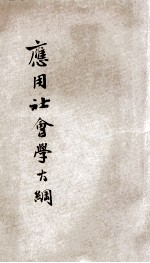 應用社會學大綱